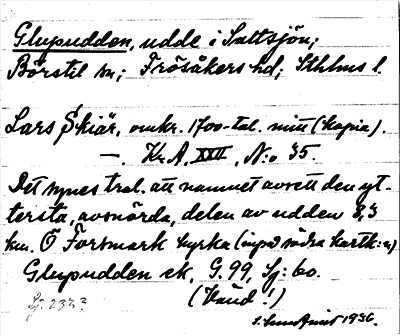 Glupudden, udde i Saltsjön;
Börstil sn; Frösåkers hd; Sthlms l.
Lars Skiär, omkr. 1700-tal. mitt (kopia).
—. Kr. A. XXII, N:o 35.
Det synes tral. att namnet avsett den yt-
tersta, avsnörda, delen av udden 8,3
km. Ö Forsmark kyrka (inpå södra kartk:n)
Glupudden ek. G. 99, Sj: 60.
(Haud!)
Sj. 233?
S. Sundqvist 1936.